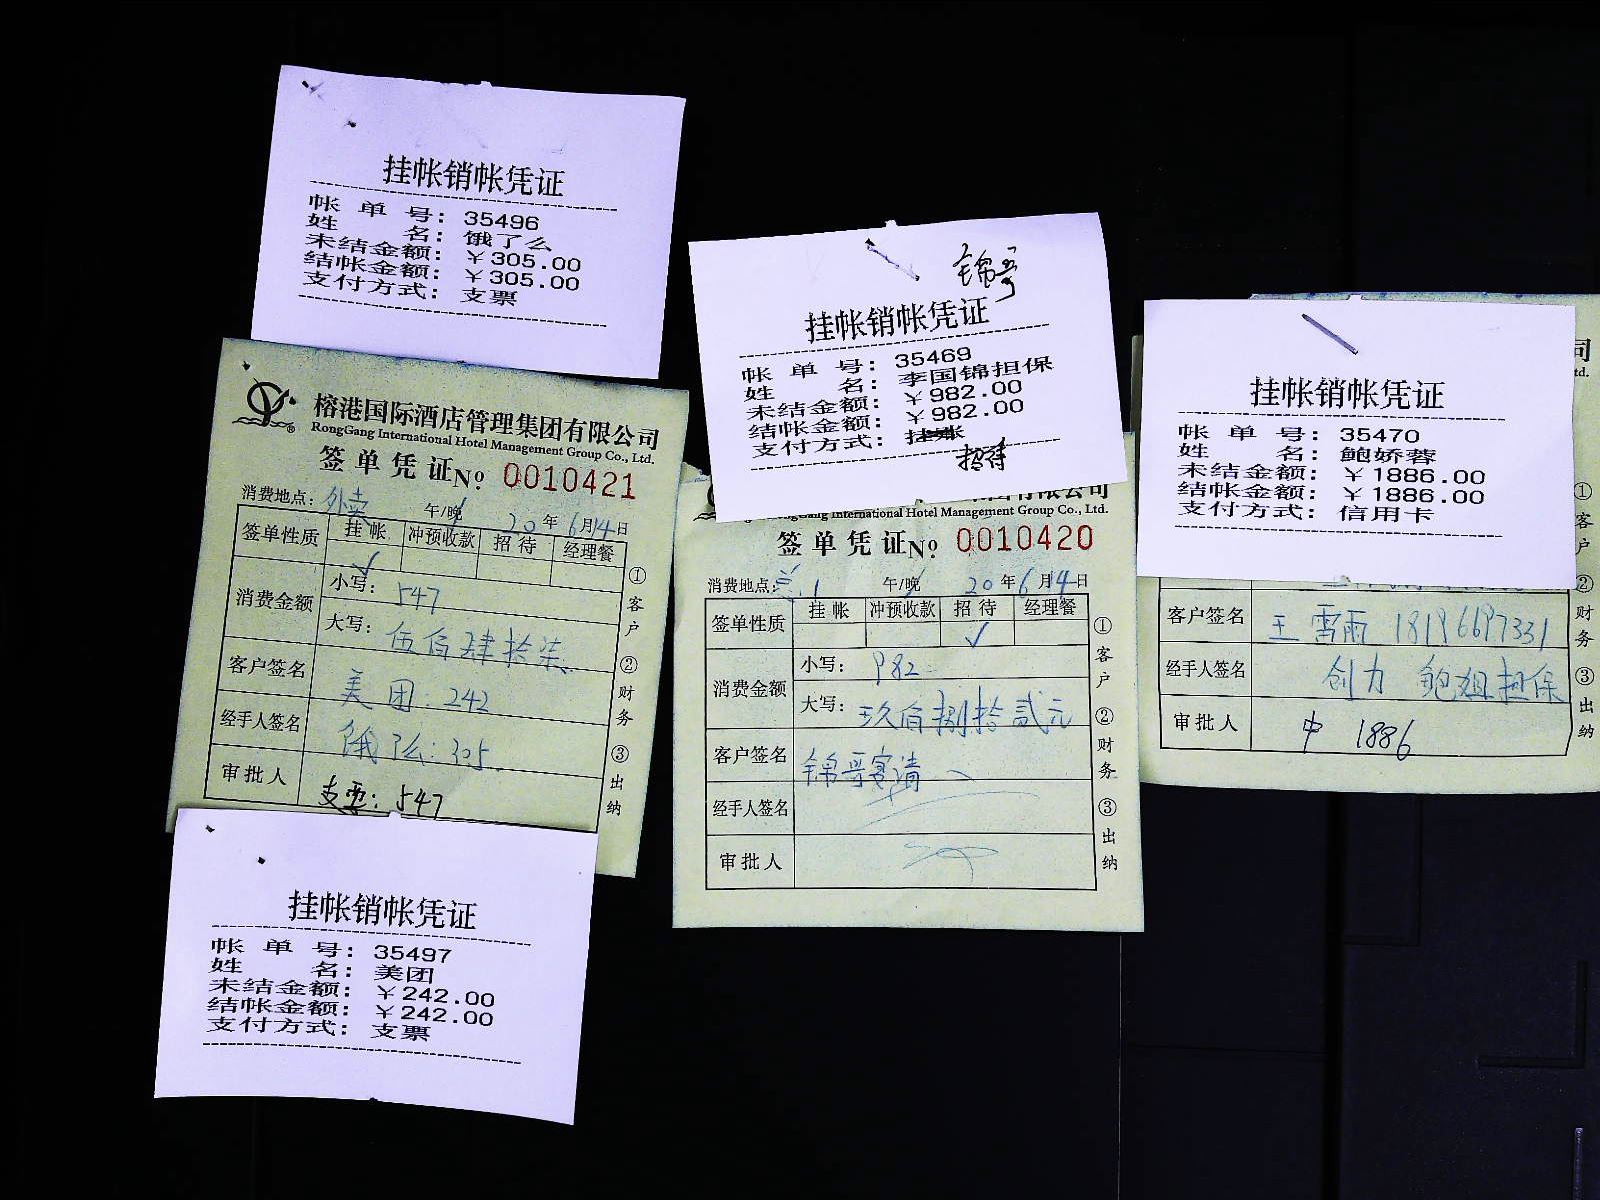 挂帐销帐凭证
帐单号：35496
姓名：饿了么
未结金额：￥305.00
结帐金额：￥305.00
支付方式：支票
榕港国际酒店管理集团有限公司
RongGang International Hotel Management Group Co., Ltd.
签单凭证 No: 0010421
消费地点：外卖 午/晚 20年6月14日
签单性质 挂帐 冲预收款 招待 经理餐
✓
消费金额 小写：547
大写：伍佰肆拾柒
客户签名 美团：242
经手人签名 饿了么：305
审批人 支票：547
①客户 ②财务 ③出纳
挂帐销帐凭证
帐单号：35497
姓名：美团
未结金额：￥242.00
结帐金额：￥242.00
支付方式：支票
锦哥
挂帐销帐凭证
帐单号：35469
姓名：李国锦担保
未结金额：￥982.00
结帐金额：￥982.00
支付方式：挂帐
招待
有限公司
RongGang International Hotel Management Group Co., Ltd.
签单凭证 No: 0010420
消费地点：兰1 午/晚 20年6月14日
签单性质 挂帐 冲预收款 招待 经理餐
✓
消费金额 小写：982
大写：玖佰捌拾贰元
客户签名 锦哥宴请
经手人签名
审批人
①客户 ②财务 ③出纳
挂帐销帐凭证
帐单号：35470
姓名：鲍娇蓉
未结金额：￥1886.00
结帐金额：￥1886.00
支付方式：信用卡
司
td.
客户签名 王雪雨 18196697331
经手人签名 创力 鲍姐担保
审批人 中 1886
①客户 ②财务 ③出纳